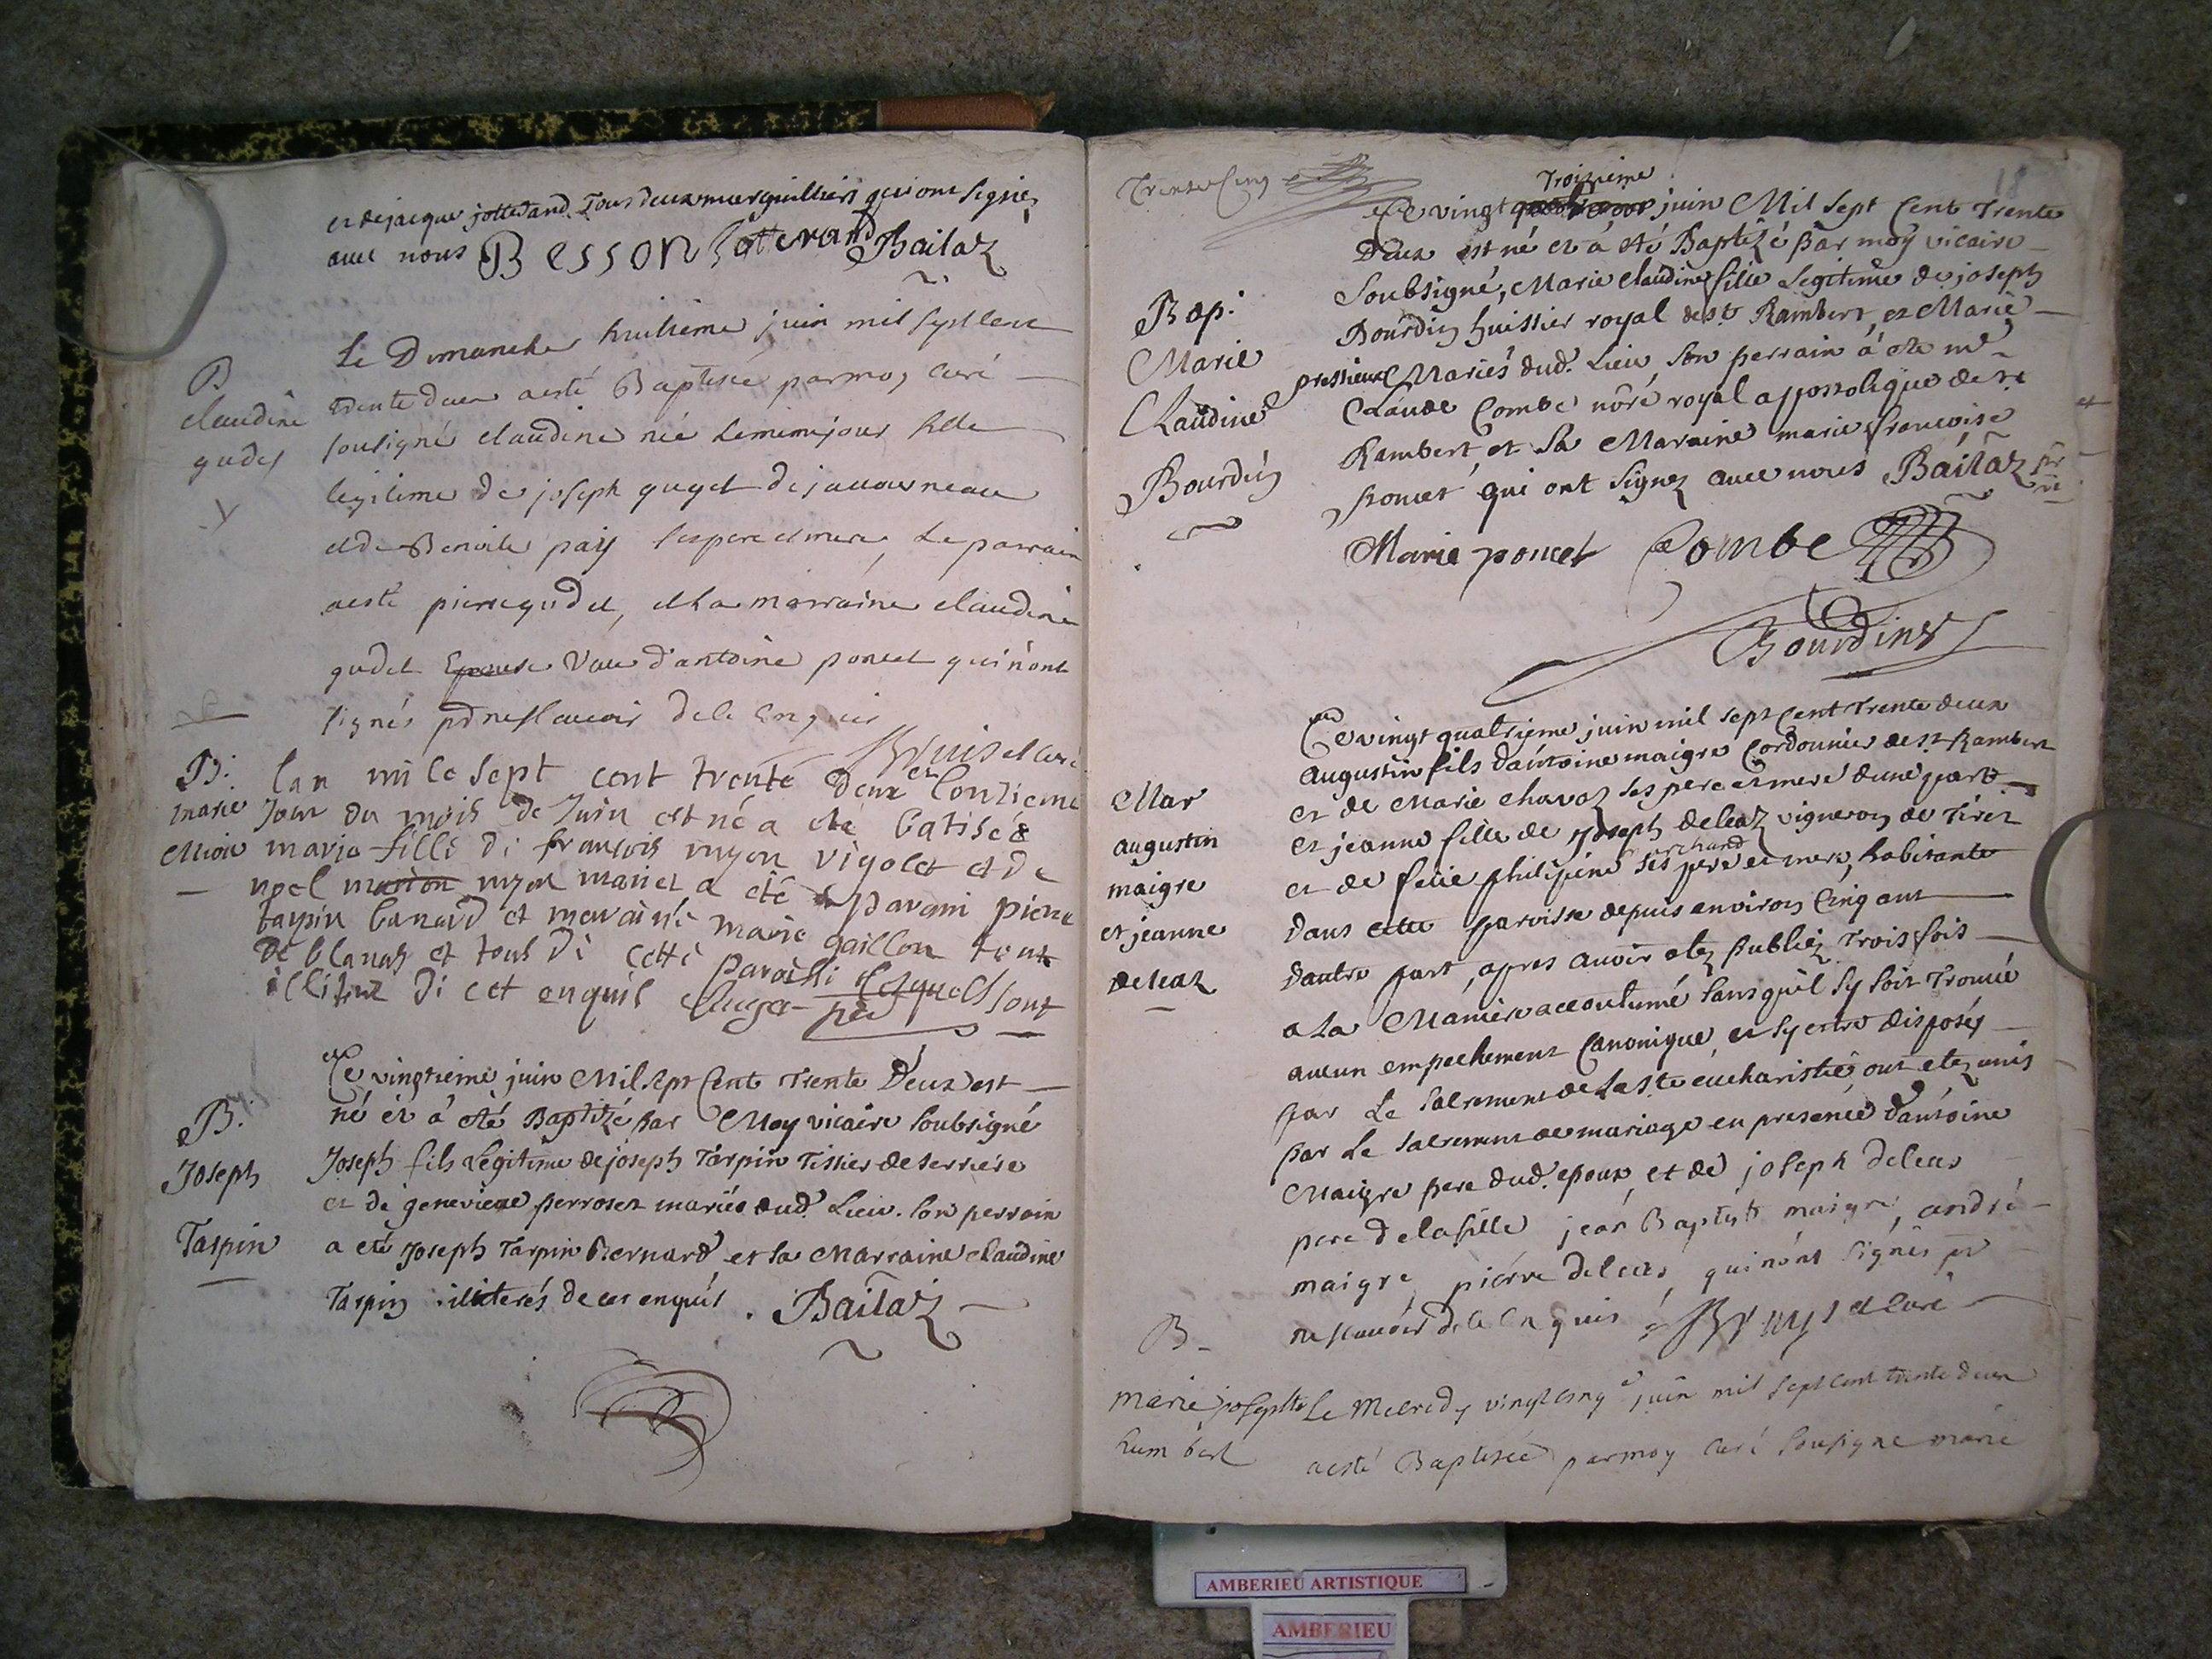 et de jacque jotterand. Tous deux merguilliers qui ont signés
avec nous Besson Jotterand Bailaz
B
claudine
gudet
Le Dimanche huitieme juin mil sept cent
trente deux a esté Baptisée par moy curé
sousigné claudine née le meme jour fille
legitime de joseph guget de
et de Benoite pay ses pere et mere, Le parrain
a esté pierre gudet, et la marraine claudine
gudet Epouse d'antoine poncet qui n'ont
signés de le Enquis
curé
B:
marie
lan mile sept cent trente deux et lonzieme
Jour du mois de Juin est né a eté batisée
marie fille di francois vigolet et de
marion mariet a eté parain piere
tarpin banard et maraine marie gaillon tous
de blanas et tous di cette paroishi lesquels sont
illiteré di cet enquis
B:
Joseph
Tarpin
Ce vingtieme juin Mil sept Cent Trente Deux est
né et a eté Baptizé par Moy vicaire soubsigné
Joseph fils Legitime de joseph Tarpin Tissier de serriere
et de genevieve perroset mariés dud. Lieu. son perrain
a eté Joseph Tarpin Bernard et sa Marraine claudine
Tarpin illiterés de ce enquis. Bailaz
Trente Cinq
18
Troizieme
Ce vingt juin Mil sept Cent Trente
Deux est né et a eté Baptizé par moy vicaire
Soubsigné, Marie claudine fille Legitime de joseph
Bourdin huissier royal de st. Rambert, et Marie
pressieux Mariés dud. Lieu, son perrain a ete me
Claude Combe nore royal appostolique de st
Rambert, et sa Maraine marie francoise
poncet qui ont signez avec nous Bailaz
Bap:
Marie
Claudine
Bourdin
Marie poncet Combe
Bourdin
Ce vingt quatrieme juin mil sept Cent Trente deux
augustin fils d'antoine maigre Cordonnier de st Rambert
et de Marie chavoz ses pere et mere d'une part
et jeanne fille de Joseph deleaz vigneron de Tiret
et de feüe philipine marchand ses pere et mere, habitante
dans cette paroisse depuis environ Cinq ans
dautre part, apres avoir etez publiéz Trois fois
a la Maniere accoutumé sans qu'il sy soit Trouvé
aucun empechement Canonique, et sy estre disposés
par Le sacrement de La ste eucharistie, ont etez unis
par Le sacrement de mariage en presence d'antoine
Maigre pere dud. epoux, et de joseph deleas
pere de la fille jean Baptiste maigre, andré
maigre, pierre deleas, qui n'ont signés pr
ne scavoir de le Enquis curé
Mar
augustin
maigre
et jeanne
deleaz
B
marie josephte
humbert
Le Mecredy vingt cinq e juin mil sept cent trente deux
a esté Baptisée par moy Curé sousigné marie
AMBERIEU ARTISTIQUE
AMBERIEU